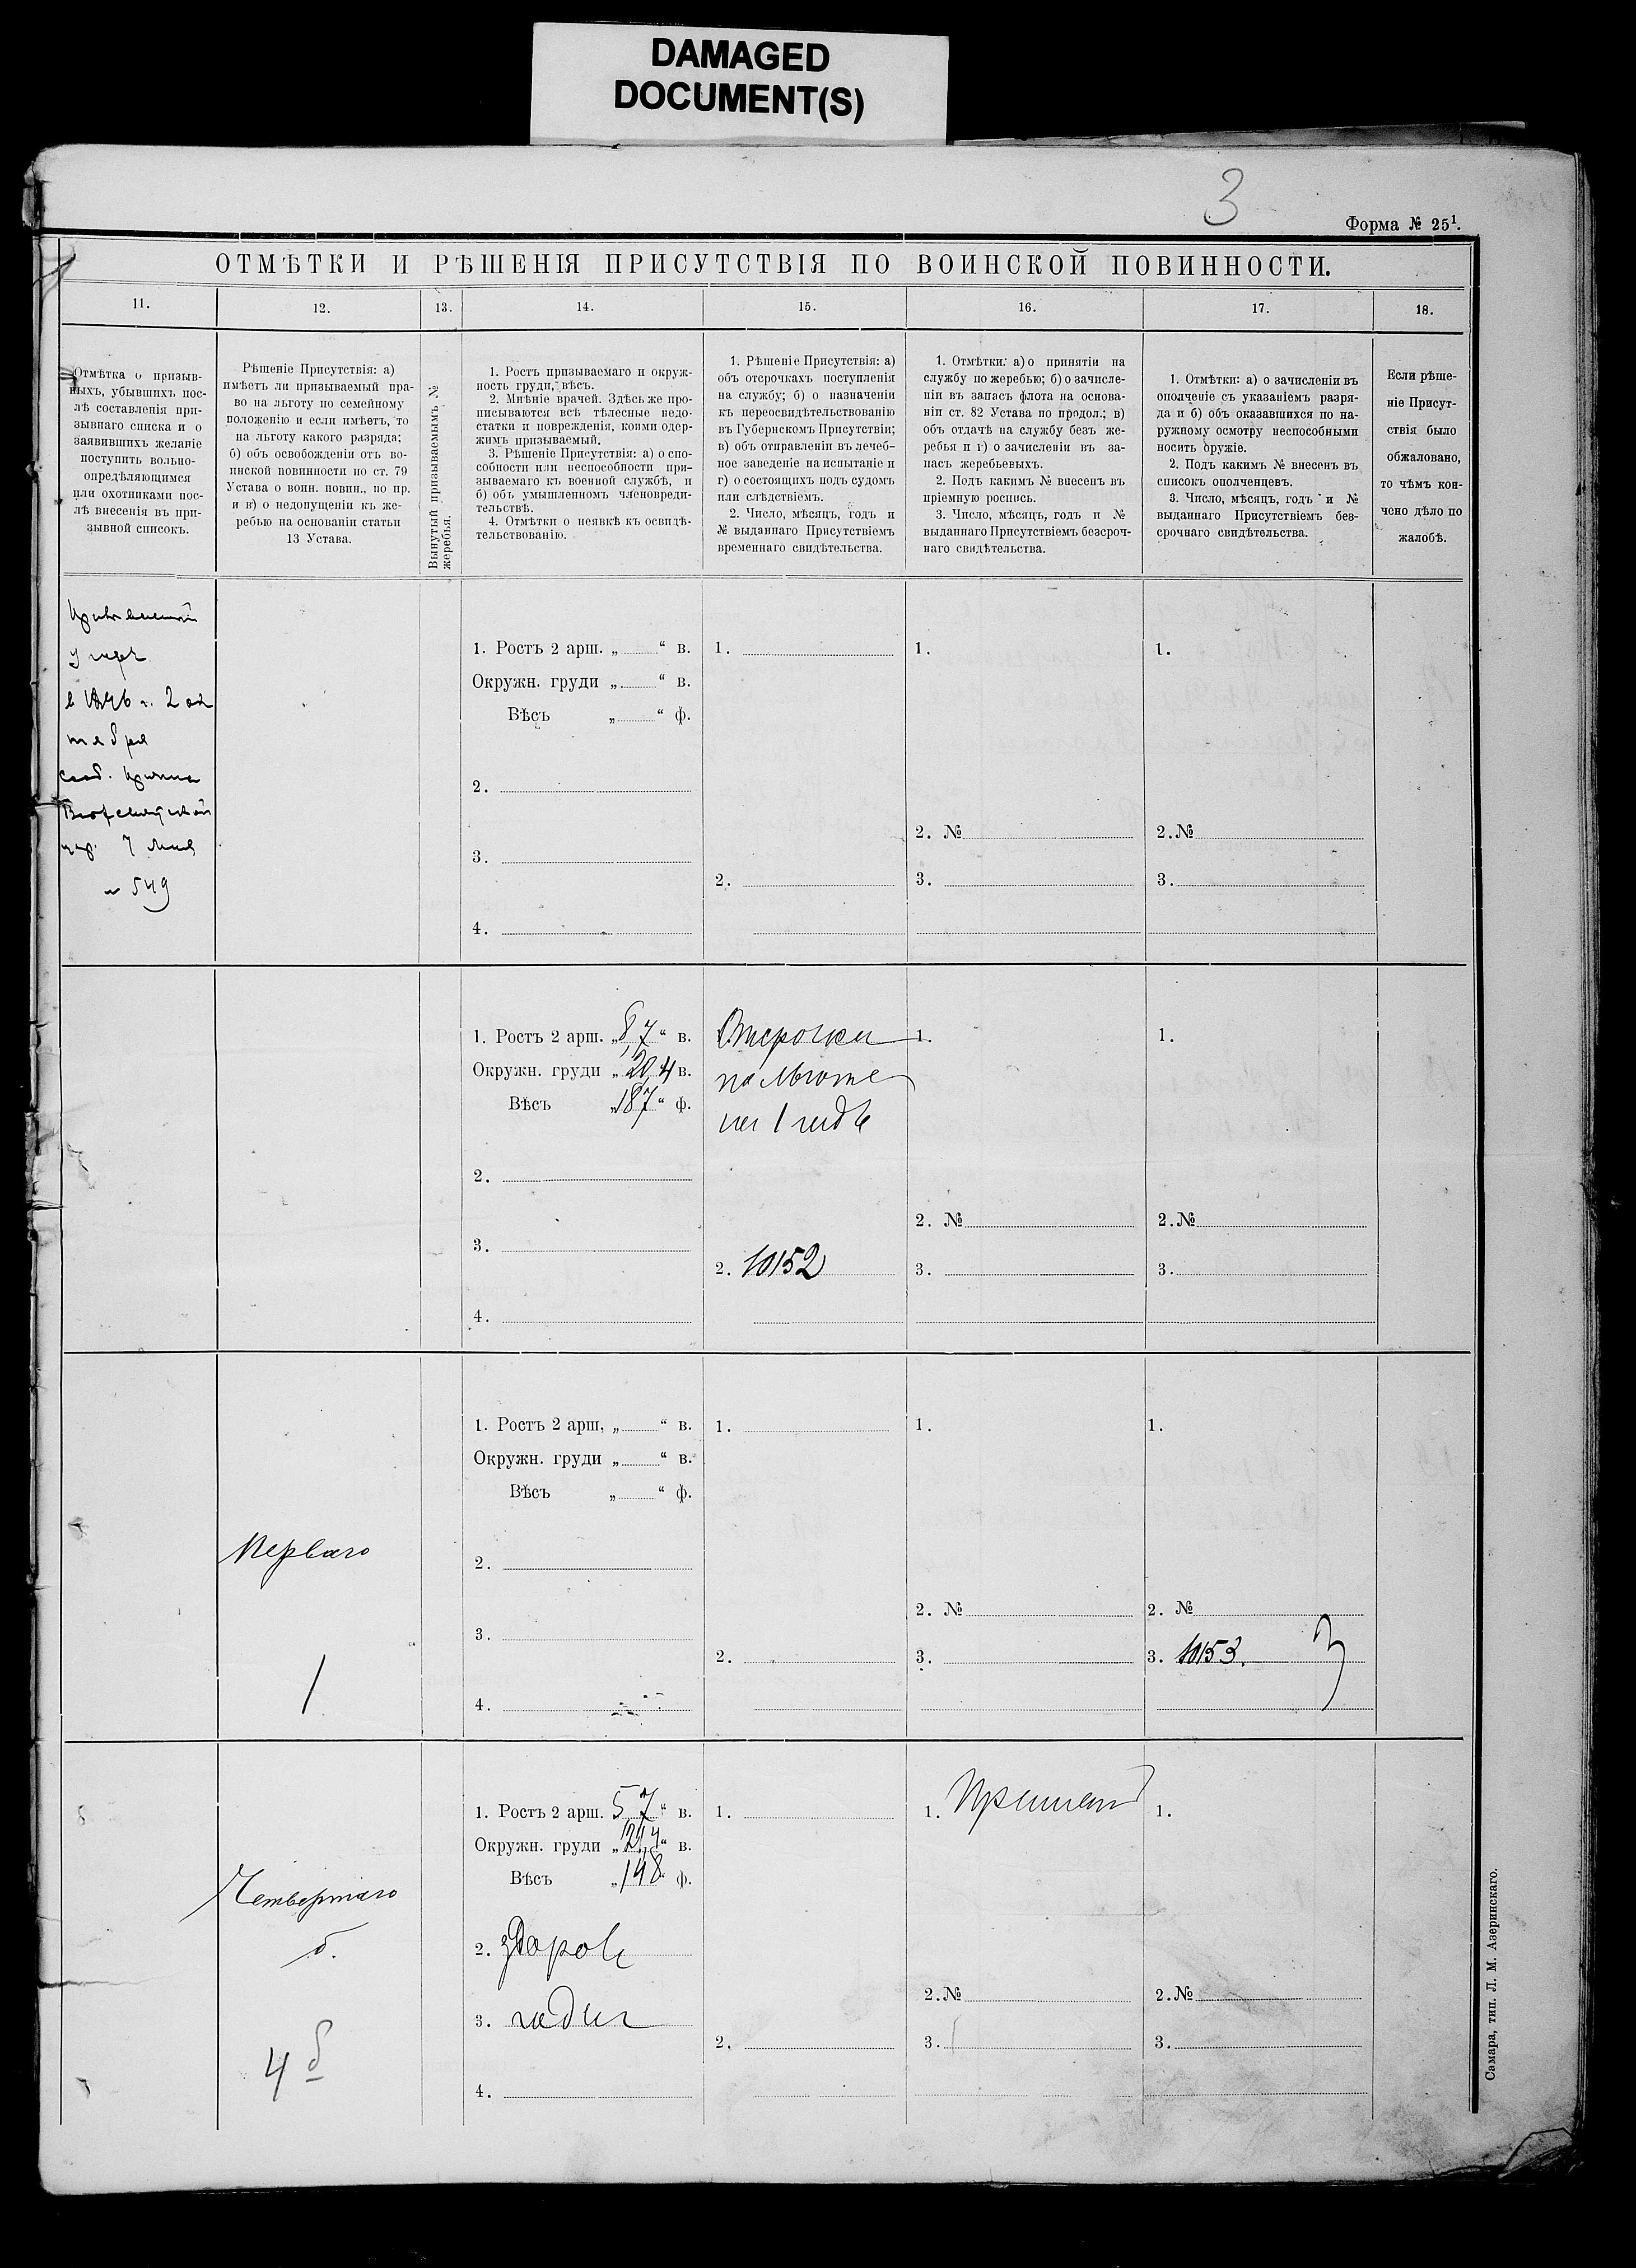 DAMAGED
DOCUMENT(S)
3
Форма № 25¹.
ОТМѢТКИ И РѢШЕНІЯ ПРИСУТСТВІЯ ПО ВОИНСКОЙ ПОВИННОСТИ.
11.
12.
13.
14.
15.
16.
17.
18.
Отмѣтка о призыв-
ныхъ, убывшихъ пос-
лѣ составленія при-
зывнаго списка и о
заявившихъ желаніе
поступить вольно-
опредѣляющимся
или охотниками пос-
лѣ внесенія въ при-
зывной списокъ.
Рѣшеніе Присутствія: а)
имѣетъ ли призываемый пра-
во на льготу по семейному
положенію и если имѣетъ, то
на льготу какого разряда;
б) объ освобожденіи отъ во-
инской повинности по ст. 79
Устава о воин. повин., по пр.
и в) о недопущеніи къ же-
ребью на основаніи статьи
13 Устава.
Вынутый призываемымъ №
жеребья.
1. Ростъ призываемаго и окруж-
ность груди, вѣсъ.
2. Мнѣніе врачей. Здѣсь же про-
писываются всѣ тѣлесные недо-
статки и поврежденія, коими одер-
жимъ призываемый.
3. Рѣшеніе Присутствія: а) о спо-
собности или неспособности при-
зываемаго къ военной службѣ, и
б) объ умышленномъ членовреди-
тельствѣ.
4. Отмѣтки о неявкѣ къ освидѣ-
тельствованію.
1. Рѣшеніе Присутствія: а)
объ отсрочкахъ поступленія
на службу; б) о назначеніи
къ переосвидѣтельствованію
въ Губернскомъ Присутствіи;
в) объ отправленіи въ лечеб-
ное заведеніе на испытаніе и
г) о состоящихъ подъ судомъ
или слѣдствіемъ.
2. Число, мѣсяцъ, годъ и
№ выданнаго Присутствіемъ
временнаго свидѣтельства.
1. Отмѣтки: а) о принятіи на
службу по жеребью; б) о зачисле-
ніи въ запасъ флота на основа-
ніи ст. 82 Устава по продол.; в)
объ отдачѣ на службу безъ же-
ребья и г) о зачисленіи въ за-
пасъ жеребьевыхъ.
2. Подъ какимъ № внесенъ въ
пріемную роспись.
3. Число, мѣсяцъ, годъ и №
выданнаго Присутствіемъ безсроч-
наго свидѣтельства.
1. Отмѣтки: а) о зачисленіи въ
ополченіе съ указаніемъ разря-
да и б) объ оказавшихся по на-
ружному осмотру неспособными
носить оружіе.
2. Подъ какимъ № внесенъ въ
списокъ ополченцевъ.
3. Число, мѣсяцъ, годъ и №
выданнаго Присутствіемъ без-
срочнаго свидѣтельства.
Если рѣше-
ніе Присут-
ствія было
обжаловано,
то чѣмъ кон-
чено дѣло по
жалобѣ.
умеръ
2 ок
тября
7 мая
№ 549
1. Ростъ 2 арш. „ “ в.
Окружн. груди „ “ в.
Вѣсъ „ “ ф.
2.
3.
4.
1.
2.
1.
2. №
3.
1.
2. №
3.
1. Ростъ 2 арш. „8,7“ в.
Окружн. груди „20,4 в.
Вѣсъ „187“ ф.
2.
3.
4.
Отсрочка
по льготе
на 1 годъ
2. 10152
1.
2. №
3.
1.
2. №
3.
Перваго
1
1. Ростъ 2 арш, „ “ в.
Окружн. груди „ “ в.
Вѣсъ „ “ ф.
2.
3.
4.
1.
2.
1.
2. №
3.
1.
2. №
3. 10153.
Четвертаго
б.
4 б
1. Ростъ 2 арш. 5 7“ в.
Окружн. груди „21,4“ в.
Вѣсъ „148“ ф.
2. здоровъ
3. годенъ
4.
1.
2.
1. Принятъ
2. №
3.
1.
2. №
3.
Самара, тип. Л. М. Азеринскаго.